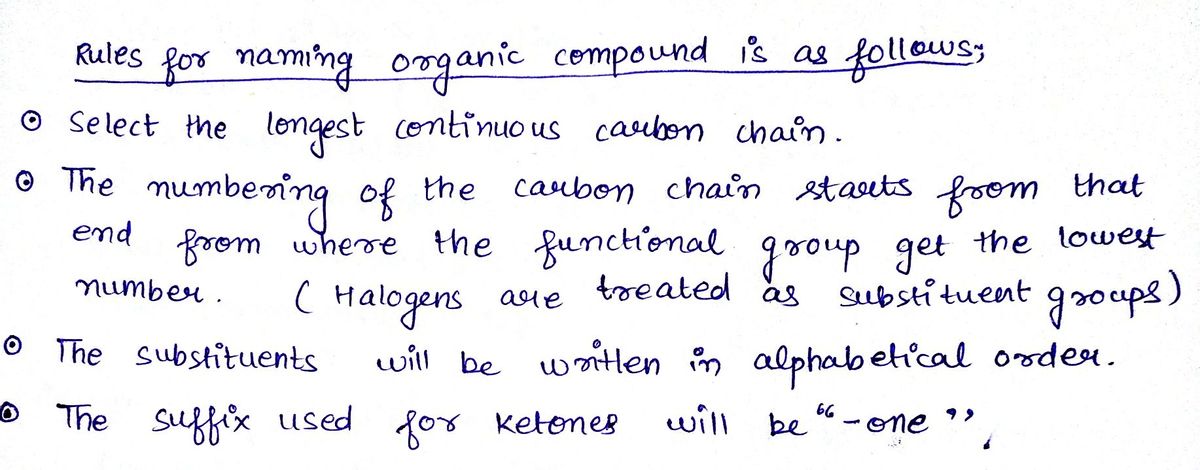 Rules for naming organic compound is as follows;
⊙ Select the longest continuous carbon chain.
⊙ The numbering of the carbon chain starts from that
end from where the functional group get the lowest
number. ( Halogens are treated as substituent groups)
⊙ The substituents will be written in alphabetical order.
⊙ The suffix used for ketones will be “-one”,